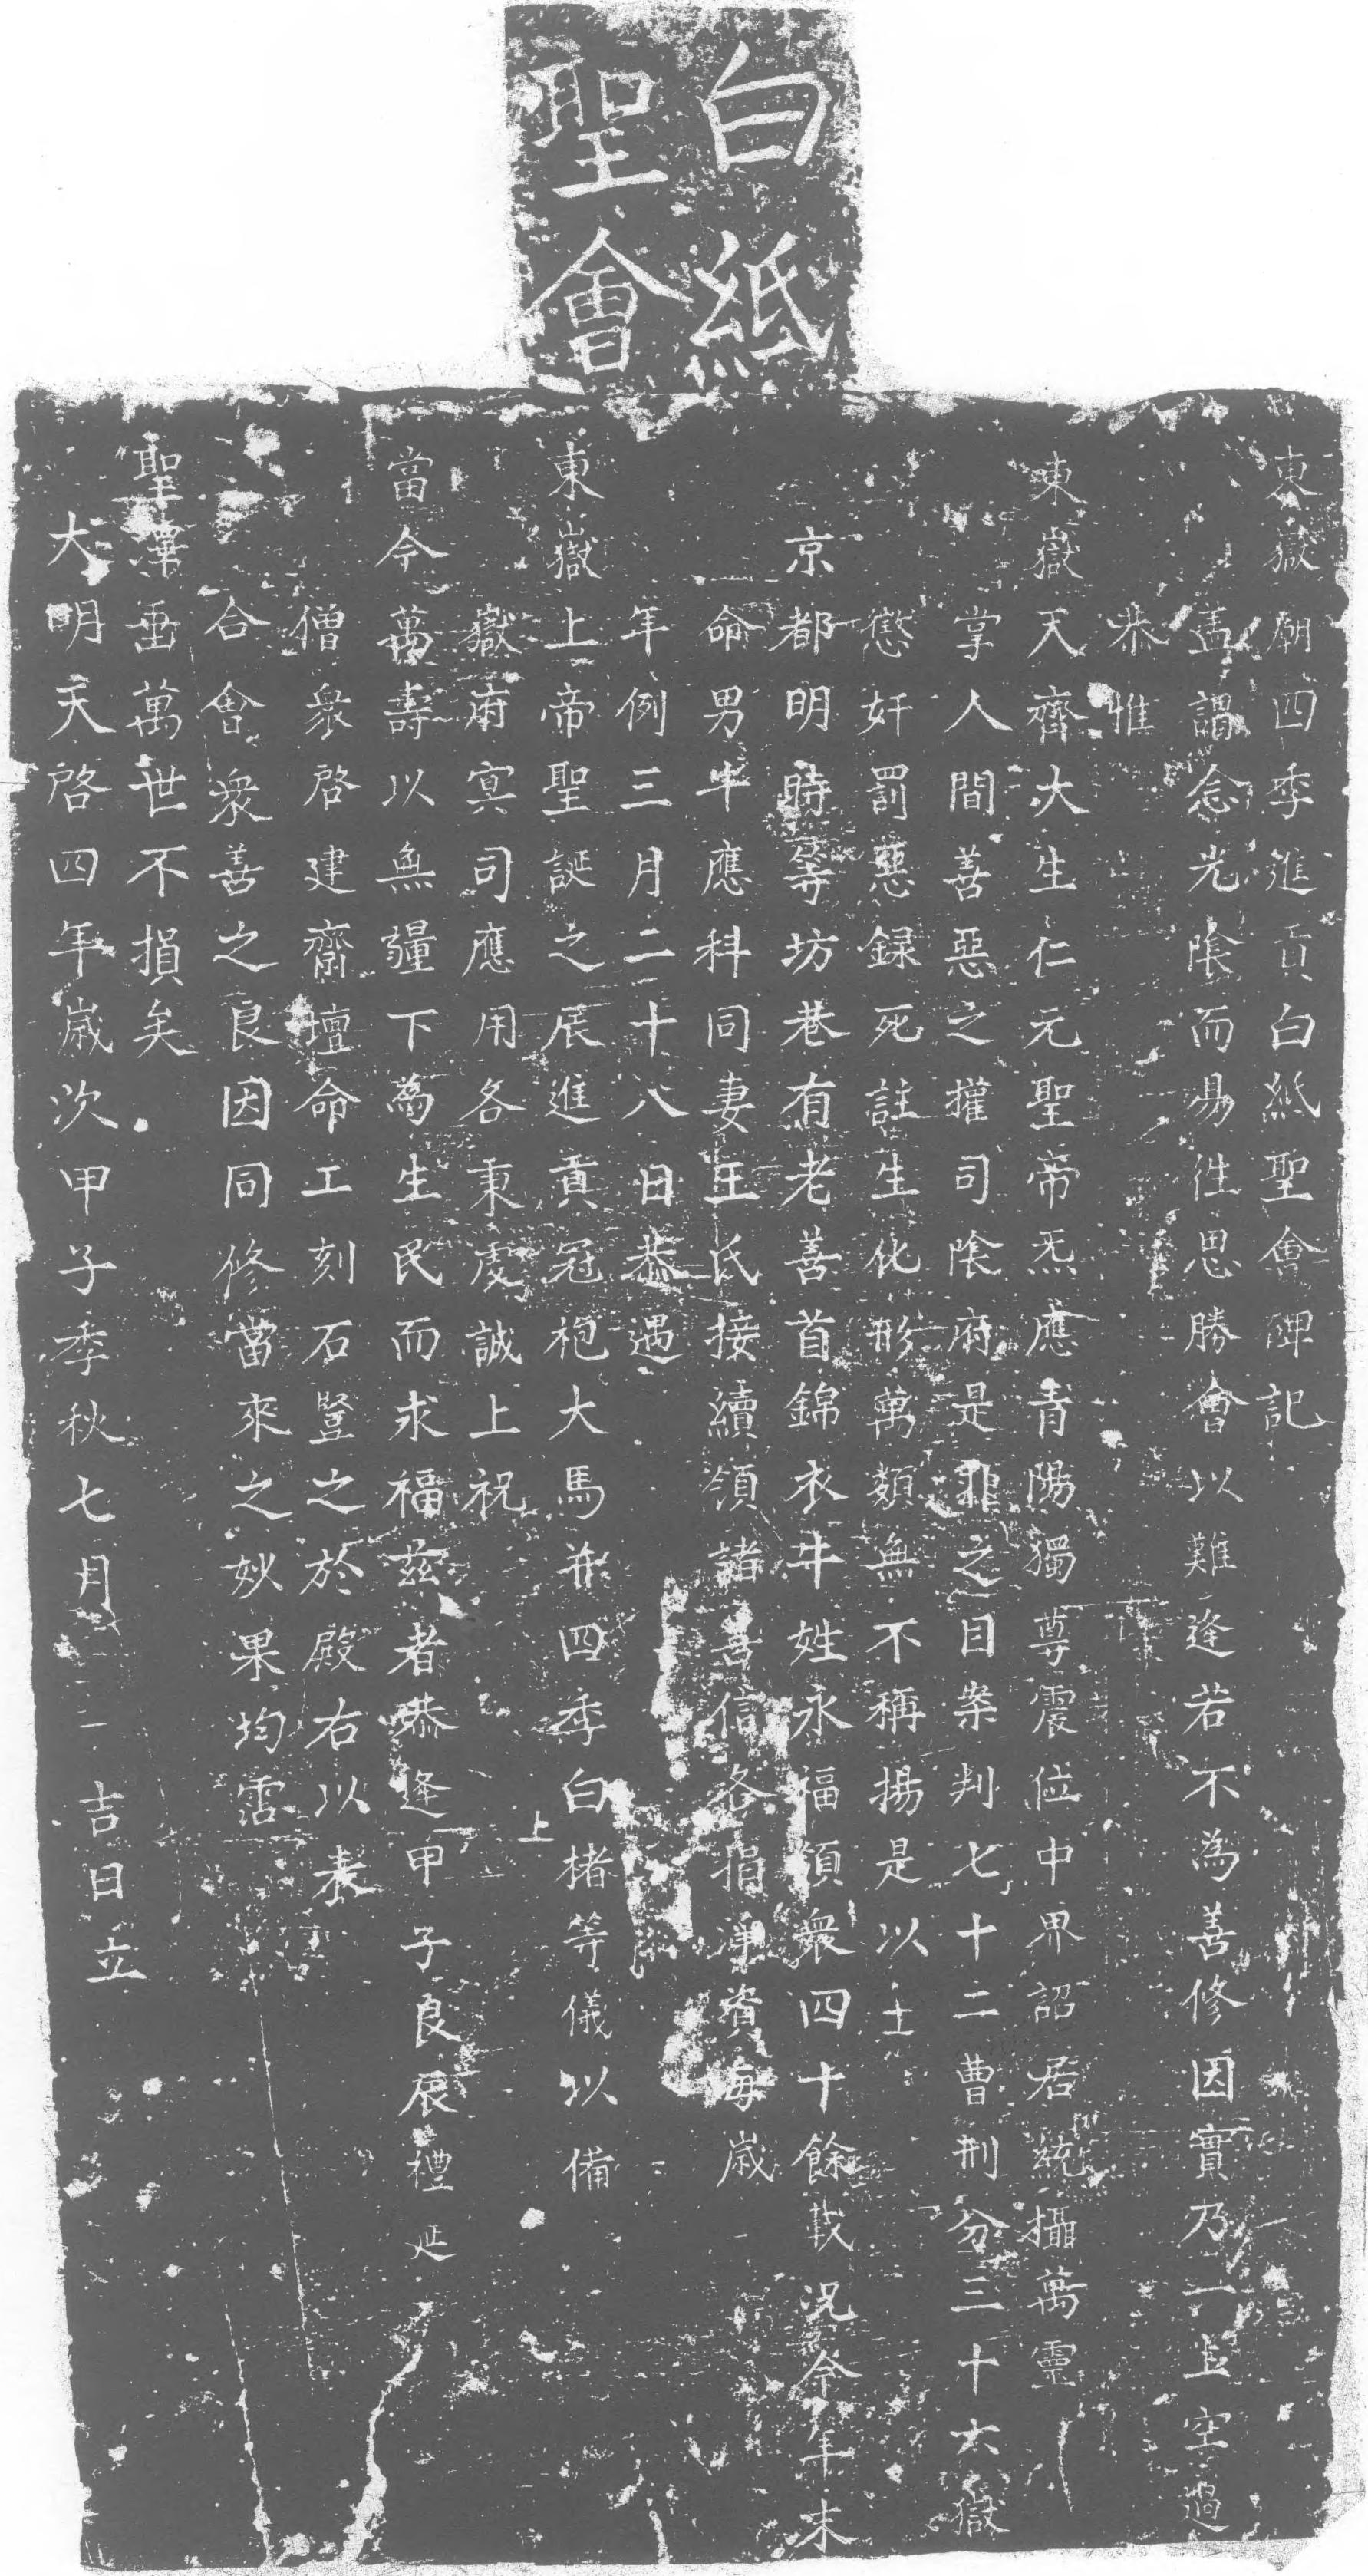 白紙
聖會
東嶽廟四季進貢白紙聖會碑記
盖謂念光隂而易徃思勝會以難逢若不為善修因實乃一上空過
恭惟
東嶽天齊大生仁元聖帝炁應青陽獨尊震位中界詔居統攝萬靈
掌人間善惡之權司隂府是非之目案判七十二曹刑分三十六獄
懲奸罰惡録死註生化形萬類無不稱揚是以士
京都明時等坊巷有老善首錦衣牛姓永福領衆四十餘載況今年末
命男牛應科同妻王氏接續領諸善信各捐凈資每歲
年例三月二十八日恭遇
東嶽上帝聖誕之辰進貢冠袍大馬并四季白楮等儀以備
嶽府冥司應用各秉虔誠上祝
上
當今萬壽以無疆下為生民而求福茲者恭逢甲子良辰禮延
僧衆啓建齋壇命工刻石豎之於殿右以表
合會衆善之良因同修當來之妙果均霑
聖澤垂萬世不損矣
大明天啓四年歲次甲子季秋七月 吉日立